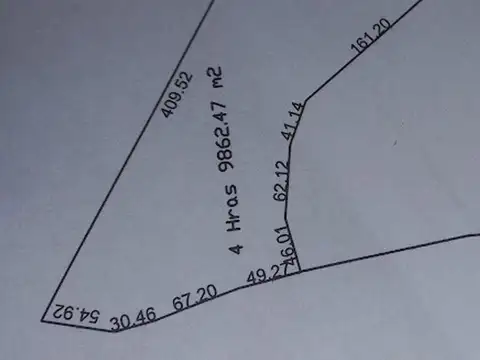 161.20
409.52
41.14
4 Hras 9862.47 m2
62.12
46.01
49.27
67.20
54.92
30.46